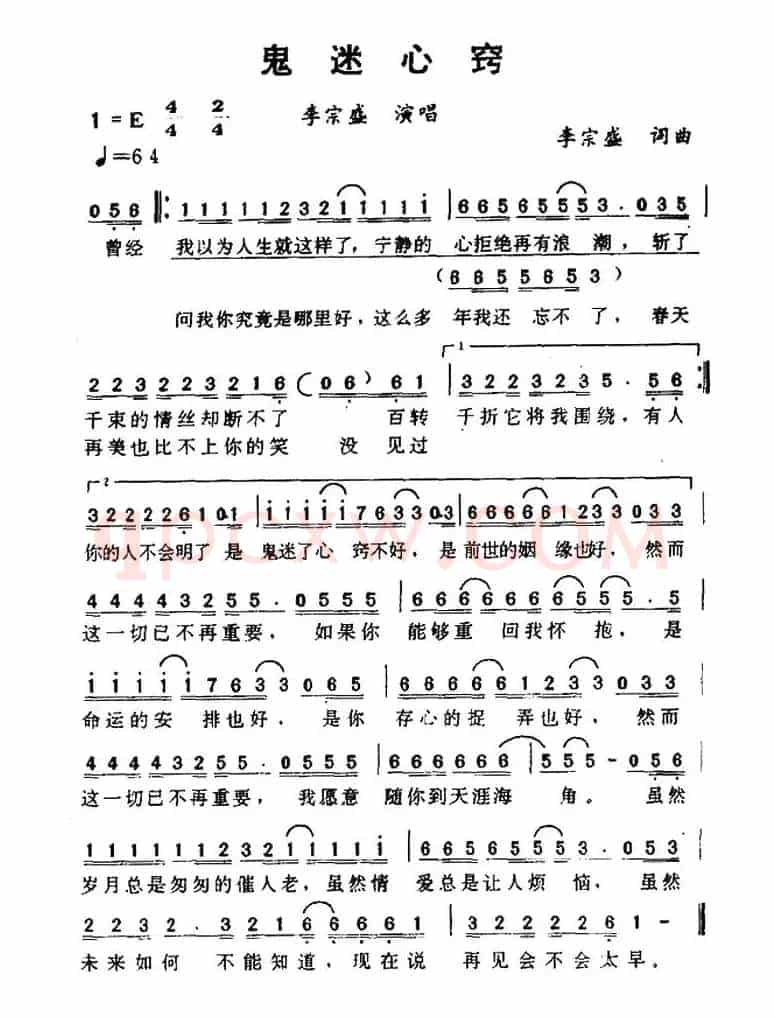 鬼 迷 心 窍
1 = E 4/4 2/4
李宗盛 演唱
李宗盛 词曲
♩=64
056 ‖: 11111232111111 | 6656555 53. 035 |
曾经 我以为人生就这样了，宁静的 心拒绝再有浪 潮，斩了
(665565 53)
问我你究竟是哪里好，这么多 年我还 忘不了，春天
1
223 2232216 (06) 61 | 3223235. 56 :‖
千束的情丝却断不了 百转 千折它将我围绕，有人
再美也比不上你的笑 没见过
2
322226101 | 11111763303 | 66666123 3033 |
你的人不会明了 是 鬼迷了心 窍不好，是 前世的姻 缘也好，然而
4444325 5. 0555 | 66666665 55. 5 |
这一切已不再重要，如果你 能够重 回我怀 抱，是
1111176 33 065 | 66666123 3 033 |
命运的安 排也好，是你 存心的捉 弄也好，然而
4444325 5. 0555 | 6666666 | 555 - 056 |
这一切已不再重要，我愿意 随你到天涯海 角。虽然
11111123211111 | 665655553. 053 |
岁月总是匆匆的催人老，虽然情 爱总是让人烦 恼，虽然
2223. 32166661 | 32222261 - ‖
未来如何 不能知道，现在说 再见会不会太早。
qpcxw.com